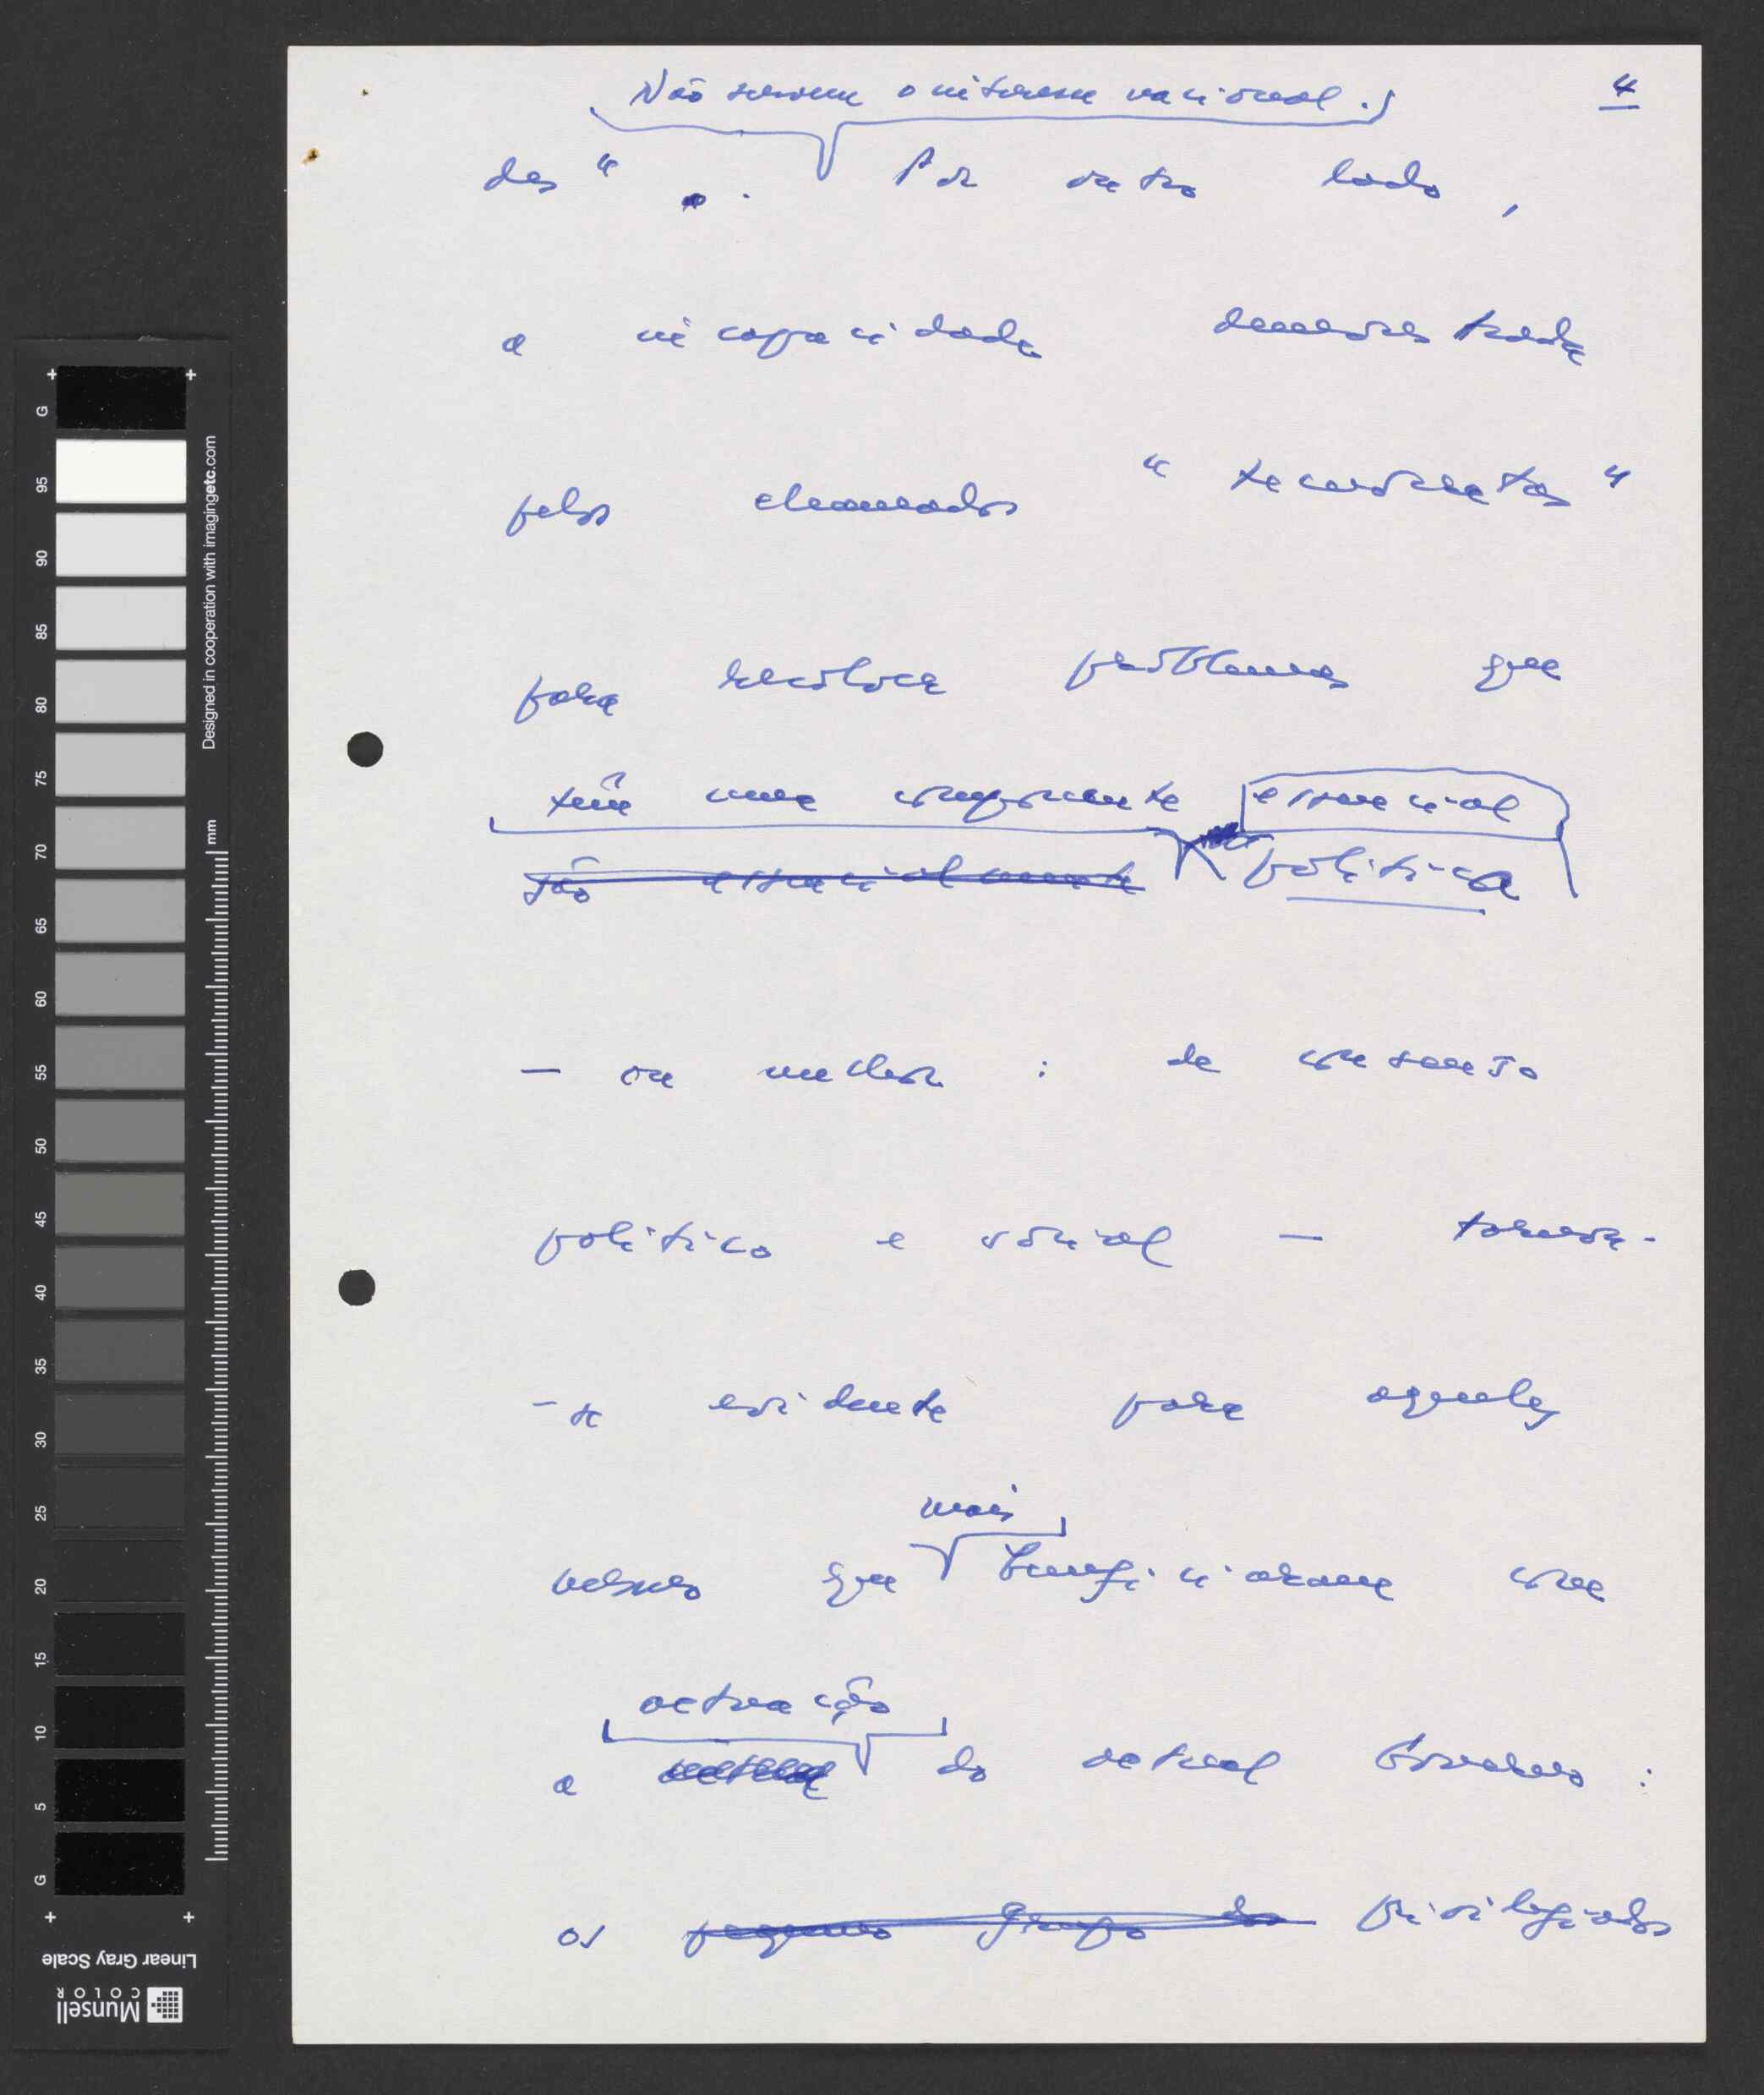 4
Não servem o interesse nacional.
des". Por outro lado,
a incapacidade demonstrada
pelos chamados "tecnocratas"
para resolver problemas que
têm uma componente essencial
são essencialmente política
— ou melhor: de conteúdo
político e social — torna-
-se evidente para aqueles
mais
mesmos que beneficiaram com
actuação
a do actual Governo:
os pequeno grupo de privilegiados
G
95
90
85
80
75
70
65
60
55
50
45
40
35
30
25
20
15
10
5
G
mm
Designed in cooperation with imagingetc.com
Linear Gray Scale
Munsell
COLOR